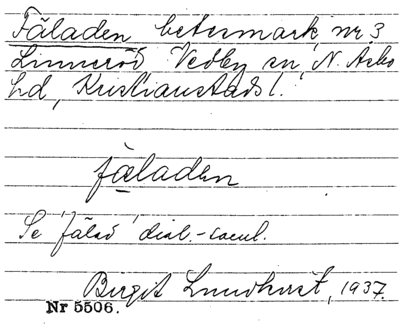 Fäladen, betesmark, nr 3
Linneröd Vedby sn, N. Åsbo
hd, Kristianstads l.
fäladen
Se 'fälad' dial.-
Birgit Lundkvist, 1937.
Nr 5506.